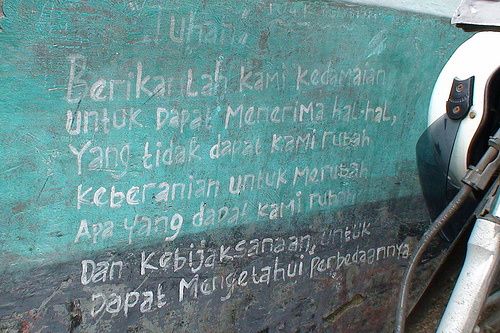 Tuhan,
Berikanlah kami kedamaian
untuk dapat Menerima hal-hal,
Yang tidak dapat kami rubah
keberanian untuk Merubah
Apa yang dapat kami rubah
Dan Kebijaksanaan, untuk
Dapat Mengetahui Perbedaannya